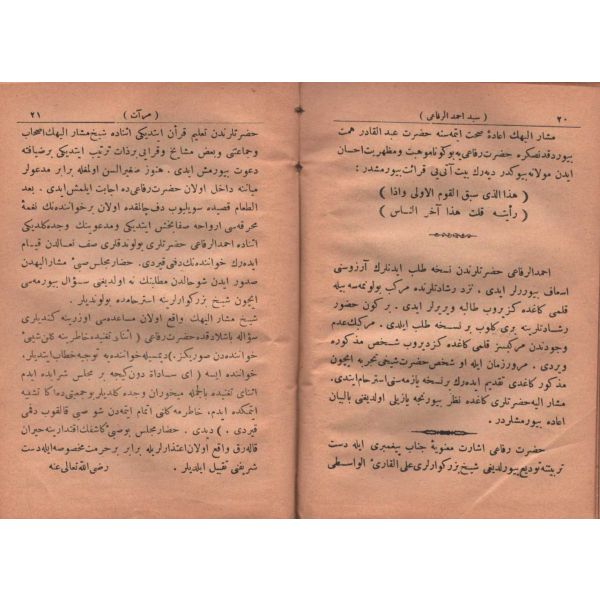 ٢٠
( سيد احمد الرفاعى )
مشار اليهك اعادهٔ صحت ايتمه‌سنه حضرت عبد القادر همت
بيوردقدنصكره حضرت رفاعى‌يه بوكونا موهبت ومظهريت احسان
ايدن مولانه بيوكدر ديه‌رك بيت آتى‌يى قرائت بيورمشدر :
( هذا الذى سبق القوم الاولى واذا )
( رأيته قلت هذا آخر الناس )
احمد الرفاعى حضرتلرندن نسخه طلب ايدنلرك آرزوسنى
اسعاف بيوررلر ايدى . نزد رشادتلرنده مركب بولونمه‌سه بيله
قلمى كاغده كزدروب طالبه ويررلر ايدى . بر كون حضور
رشادتلرينه برى كلوب بر نسخه طلب ايلدى . مركبك عدم
وجودندن مركبسز قلمى كاغده كزديروب شخص مذكوره
ويردى . مرور زمان ايله او شخص حضرت شيخى تجربه ايچون
مذكور كاغدى تقديم ايده‌رك بر نسخه يازمه‌سنى استرحام ايتدى .
مشار اليه حضرتلرى كاغده نظر بيورنجه يازيلى اولديغنى بالبيان
اعاده بيورمشلردر .
حضرت رفاعى اشارت معنويهٔ جناب پيغمبرى ايله دست
تربيتنه توديع بيورلديغى شيخ بزركوارلرى على القارئ الواسطى
٢١
( مرآت )
حضرتلرندن تعليم قرآن ايتديكى اثناده شيخ مشار اليهك اصحاب
وجماعتنى وبعض مشايخ وقرايى بر ذات ترتيب ايتديكى بر ضيافته
دعوت بيورمش ايدى . هنوز صغير السن اولمغله برابر مدعولر
مياننه داخل اولان حضرت رفاعى ده اجابت ايلمش ايدى . بعد
الطعام قصيده سويليوب دف چالمقده اولان بر خواننده‌نك نغمهٔ
محرقه‌سى ارواحه صفا بخش ايتديكى ومدعوينك وجده كلديكى
اثناده احمد الرفاعى حضرتلرى بولوندقلرى صف نعالدن قيام
ايده‌رك خواننده‌نك دفنى قيردى . حضار مجلس صبىٔ مشار اليهدن
صدور ايدن شو حالدن مطلبنك نه اولديغنى سؤال بيورمه‌سى
ايچون شيخ بزركوارلرينه استرحامده بولونديلر .
شيخ مشار اليهك واقع اولان مساعده‌سى اوزرينه كنديلرى
سؤاله باشلادقده حضرت رفاعى ( اثناى تغنيده خاطرينه كلن شيئى
خواننده‌دن صوريكز . ) ديمسيله خواننده‌يه توجيه خطاب ايتديلر .
خواننده ايسه ( اى ساداة دون كيجه بر مجلس شرابده ايدم
اثناى تغنيده بالجمله ميخوران وجده كلديلر بو جمعيتى ده اكا تشبيه
ايتمكده ايدم . خاطرمه كلنى اتمام ايتمه‌دن شو صبى قالقوب دفمى
قيردى . ) ديدى . حضار مجلس بو صبىٔ كاشفك اقتدارينه حيران
قاله‌رق واقع اولان اعتذارلريله برابر بر حرمت مخصوصه ايله دست
شريفنى تقبيل ايلديلر . رضى الله تعالى عنه